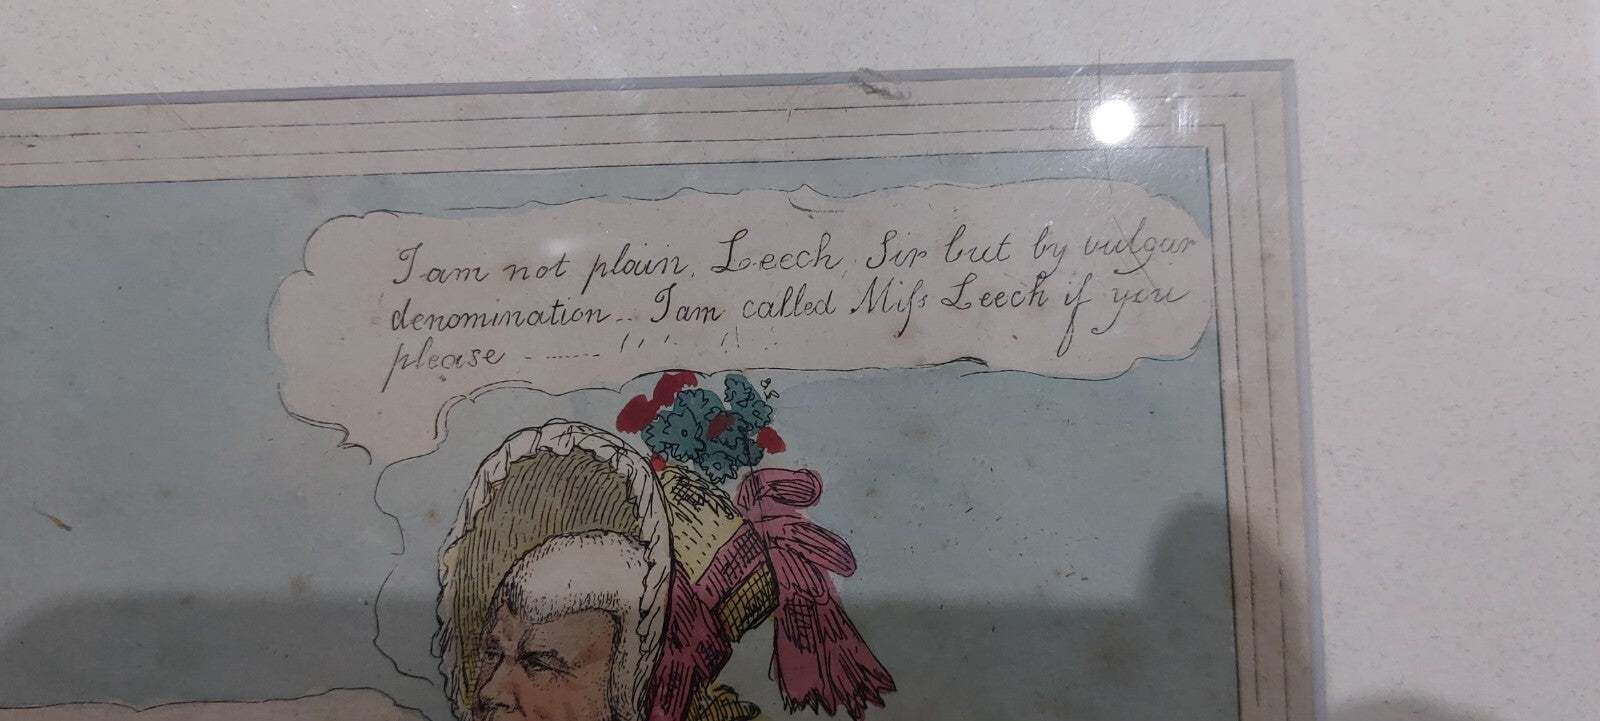 I am not plain, Leech, Sir but by vulgar
denomination.. I am called Miſs Leech if you
please - ........